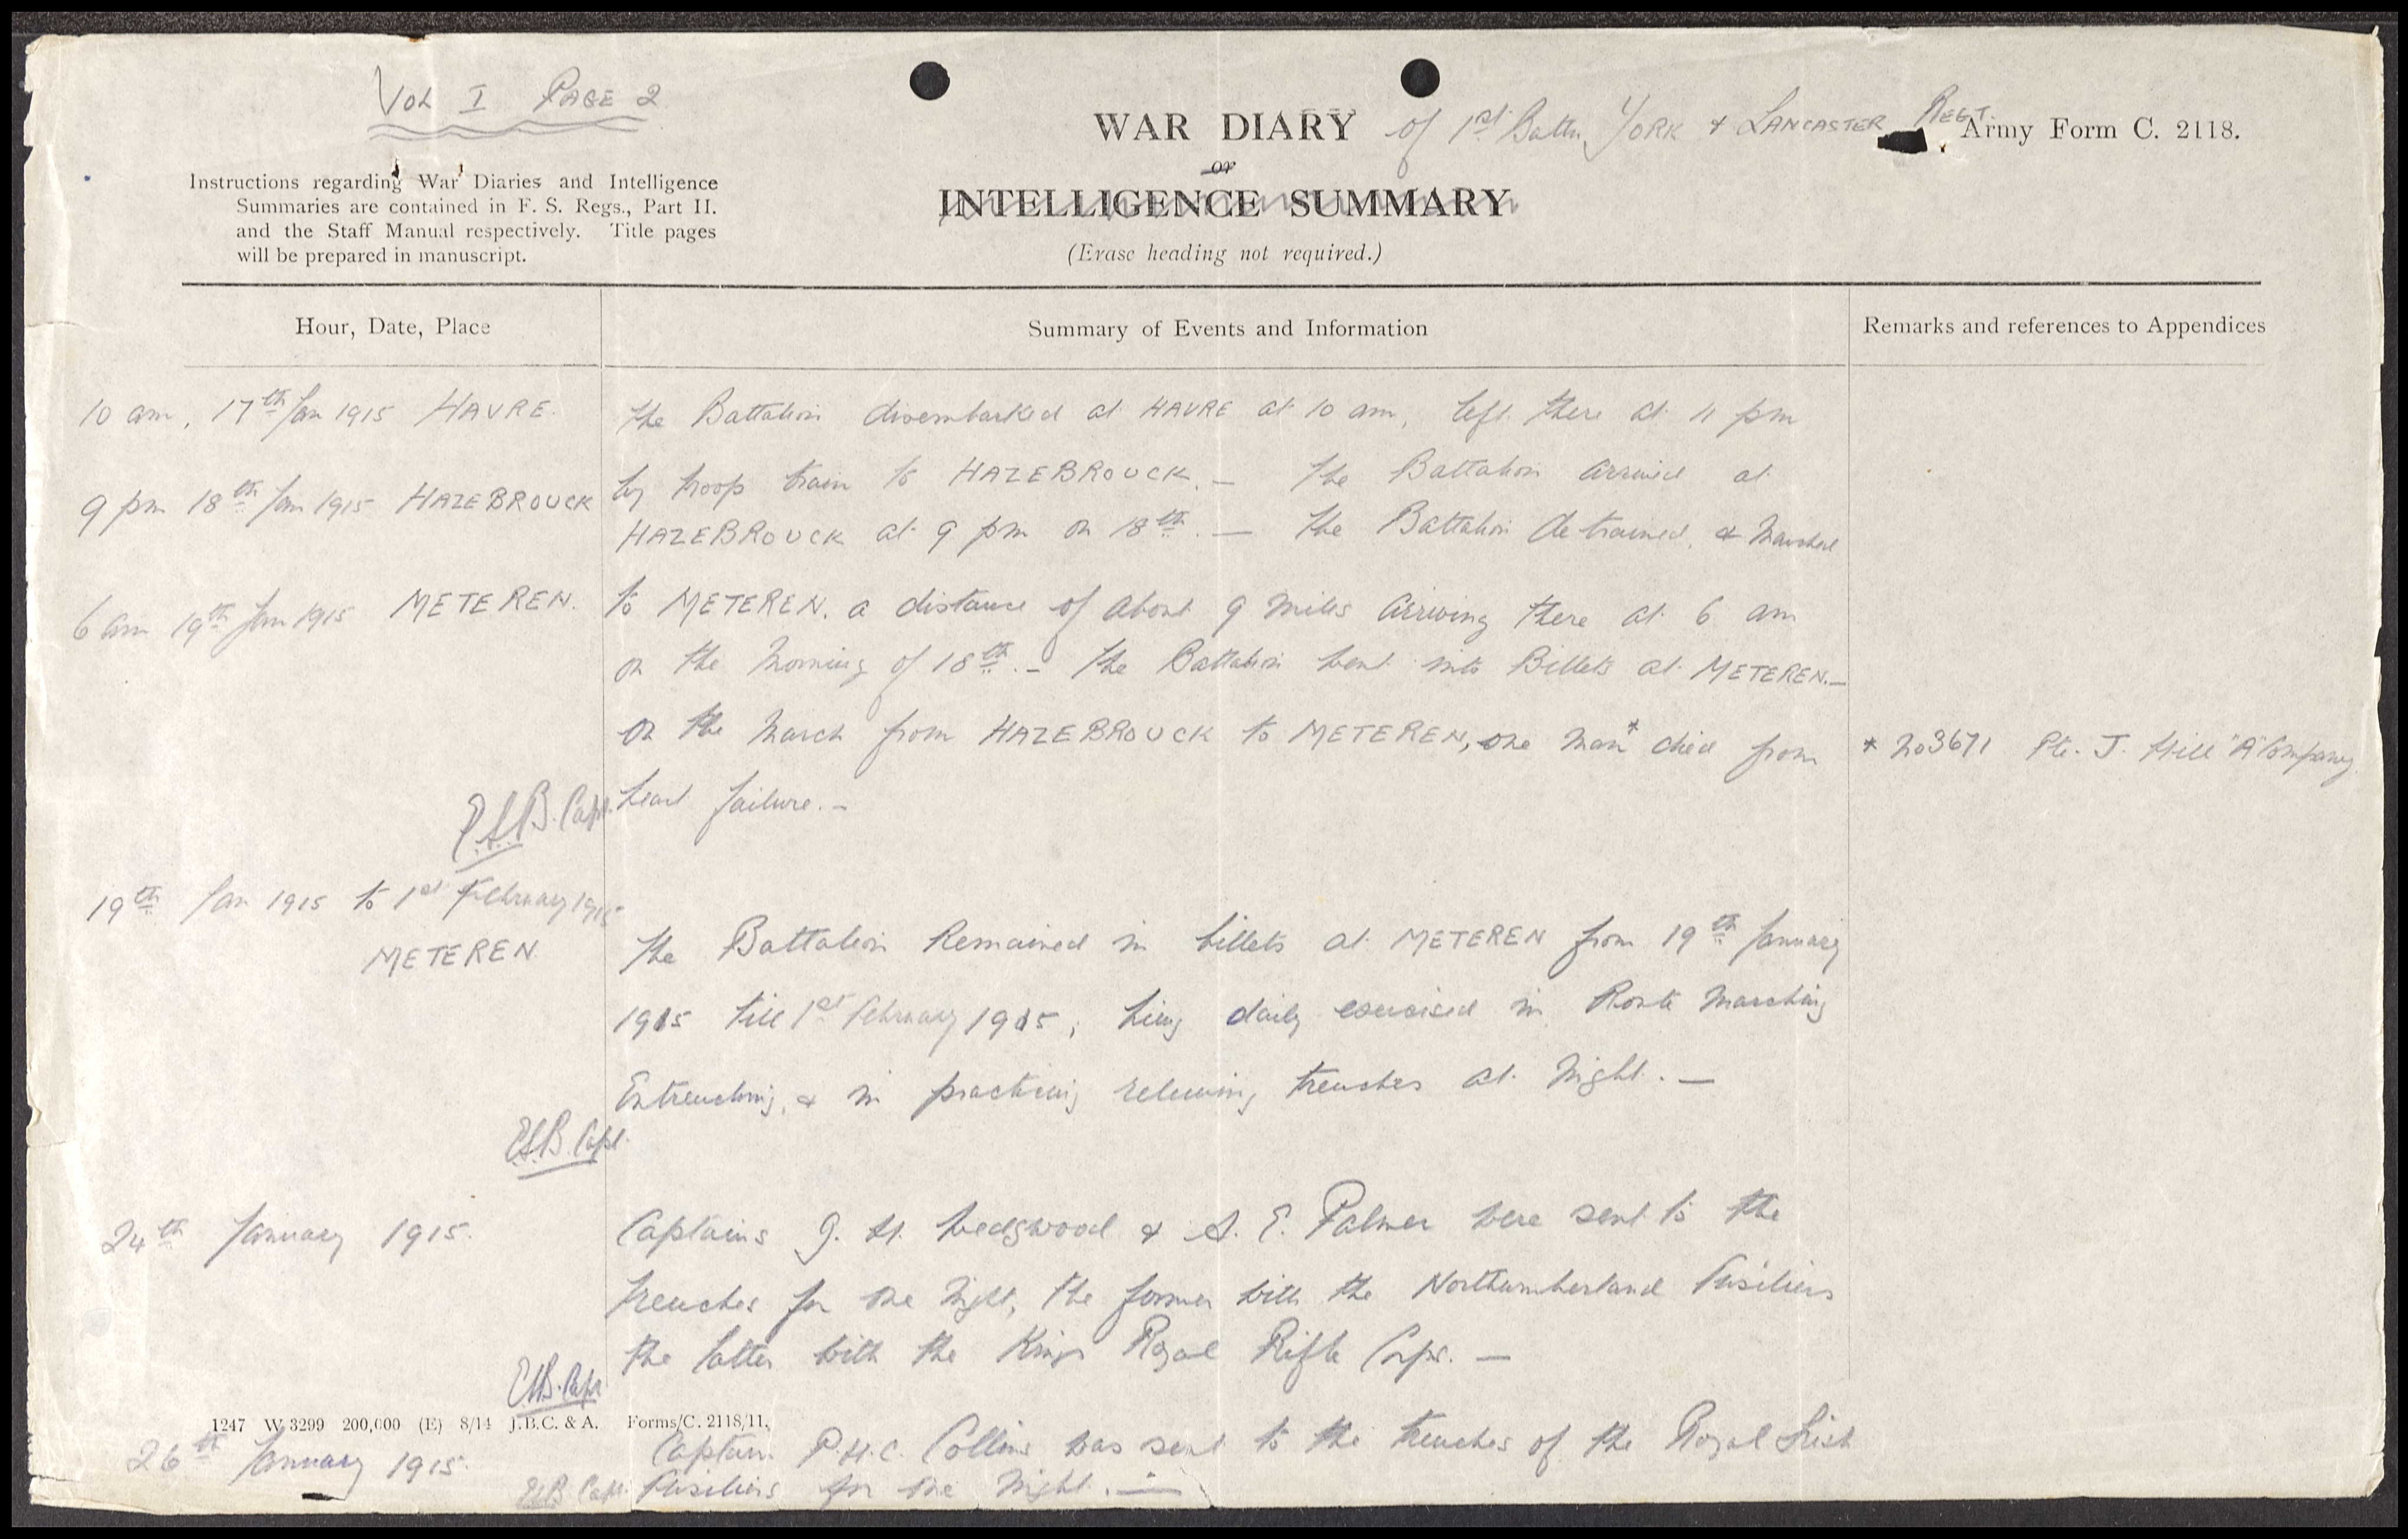 VOL I PAGE 2
WAR DIARY of 1st Battn. YORK & LANCASTER REGT.
Army Form C. 2118.
or
INTELLIGENCE SUMMARY
(Erase heading not required.)
Instructions regarding War Diaries and Intelligence
Summaries are contained in F. S. Regs., Part II.
and the Staff Manual respectively. Title pages
will be prepared in manuscript.
Hour, Date, Place
Summary of Events and Information
Remarks and references to Appendices
10 am, 17th Jan 1915 HAVRE.
The Battalion disembarked at HAVRE at 10 am, left there at 11 pm
9 pm 18th Jan 1915 HAZEBROUCK
by troop train to HAZEBROUCK. — The Battalion arrived at
HAZEBROUCK at 9 pm on 18th. — The Battalion detrained, & marched
6 am 19th Jan 1915 METEREN.
to METEREN. a distance of about 9 miles arriving there at 6 am
on the morning of 18th. — The Battalion went into Billets at METEREN. —
On the march from HAZEBROUCK to METEREN, one man* died from
* No 3671 Pte. J. Hill "A" Company.
heart failure. —
Capt.
19th Jan 1915 to 1st February 1915
METEREN.
The Battalion remained in billets at METEREN from 19th January
1915 till 1st February 1915, being daily exercised in Route Marching
Entrenching, & in practicing relieving trenches at night. —
Capt.
24th January 1915.
Captains G. H. Wedgwood & A. E. Palmer were sent to the
trenches for one night, the former with the Northumberland Fusiliers
the latter with the Kings Royal Rifle Corps. —
Capt.
1247 W 3299 200,000 (E) 8/14 J.B.C. & A. Forms/C. 2118/11.
26th January 1915.
Captain P.H.C. Collins was sent to the trenches of the Royal Irish
Capt. Fusiliers for one night. —